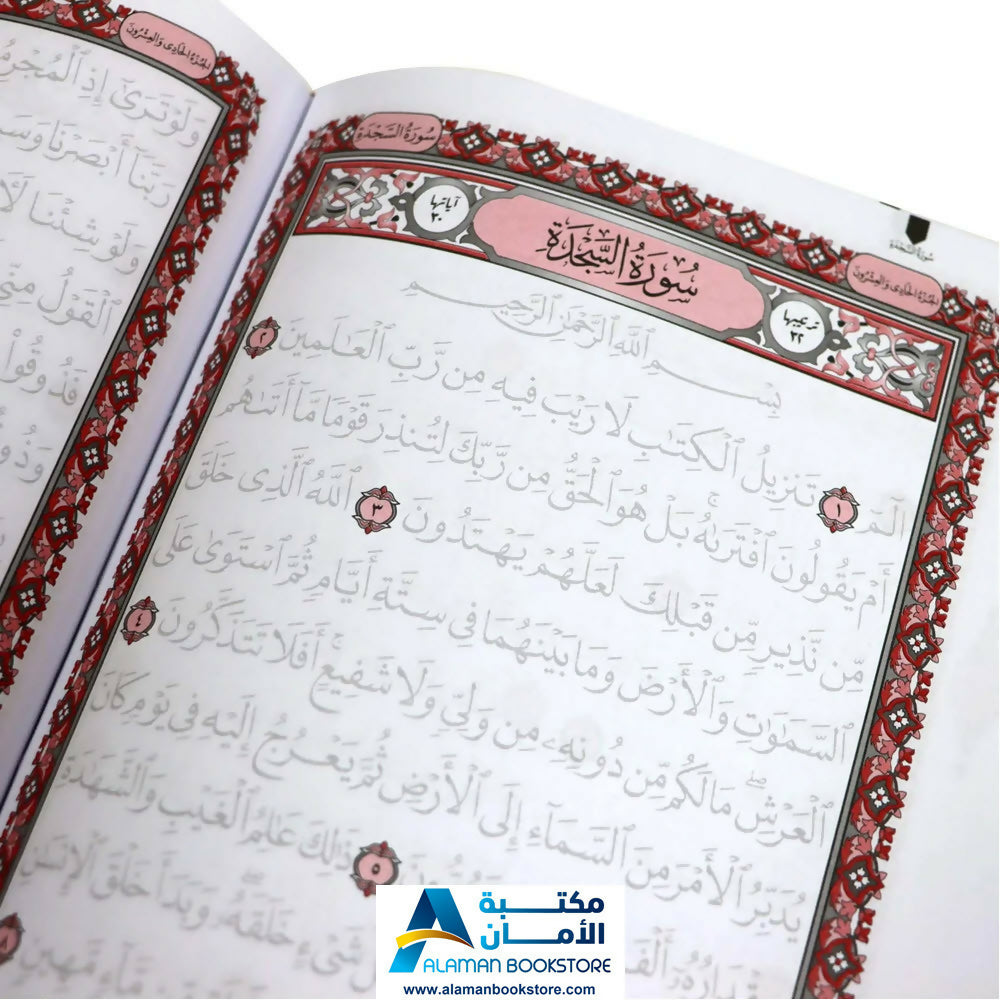 سُورَةُ السَّجْدَةِ
الجُزْءُ الحَادِى وَالعِشْرُونَ
سُورَةُ السَّجْدَةِ
ترتيبها
٣٢
سُورَةُ السَّجْدَةِ
آياتها
٣٠
بِسْمِ ٱللَّهِ ٱلرَّحْمَٰنِ ٱلرَّحِيمِ
الٓمٓ ١ تَنزِيلُ ٱلْكِتَٰبِ لَا رَيْبَ فِيهِ مِن رَّبِّ ٱلْعَٰلَمِينَ ٢
أَمْ يَقُولُونَ ٱفْتَرَىٰهُۚ بَلْ هُوَ ٱلْحَقُّ مِن رَّبِّكَ لِتُنذِرَ قَوْمًا مَّآ أَتَىٰهُم
مِّن نَّذِيرٍ مِّن قَبْلِكَ لَعَلَّهُمْ يَهْتَدُونَ ٣ ٱللَّهُ ٱلَّذِى خَلَقَ
ٱلسَّمَٰوَٰتِ وَٱلْأَرْضَ وَمَا بَيْنَهُمَا فِى سِتَّةِ أَيَّامٍ ثُمَّ ٱسْتَوَىٰ عَلَى
ٱلْعَرْشِۖ مَا لَكُم مِّن دُونِهِۦ مِن وَلِىٍّ وَلَا شَفِيعٍۚ أَفَلَا تَتَذَكَّرُونَ ٤
يُدَبِّرُ ٱلْأَمْرَ مِنَ ٱلسَّمَآءِ إِلَى ٱلْأَرْضِ ثُمَّ يَعْرُجُ إِلَيْهِ فِى يَوْمٍ كَانَ
مِقْدَارُهُۥٓ ٥ ذَٰلِكَ عَٰلِمُ ٱلْغَيْبِ وَٱلشَّهَٰدَةِ
شَىْءٍ خَلَقَهُۥۖ وَبَدَأَ خَلْقَ ٱلْإِنسَٰنِ
مَّآءٍ مَّهِينٍ ٨
الجُزْءُ الحَادِى وَالعِشْرُونَ
وَلَوْ تَرَىٰٓ إِذِ ٱلْمُجْرِمُ
رَبَّنَآ أَبْصَرْنَا وَسَ
وَلَوْ شِئْنَا لَأ
ٱلْقَوْلُ مِنِّى
فَذُوقُوا۟
وَذُو
مكتبة
الأمان
ALAMAN BOOKSTORE
www.alamanbookstore.com